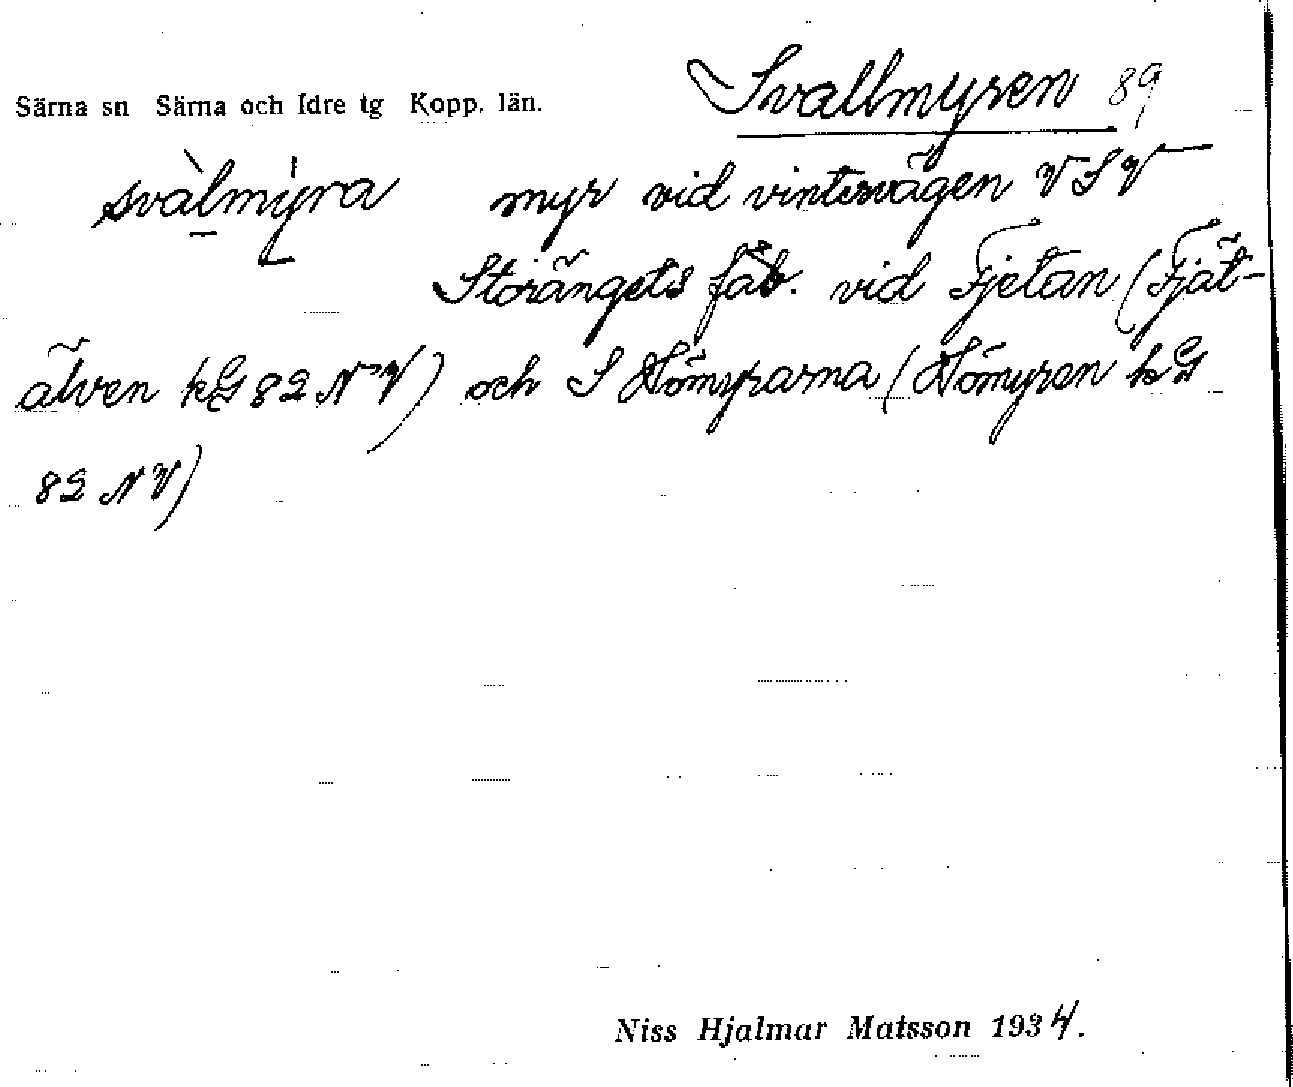 Svallmyren 89
Särna sn Särna och Idre tg Kopp. län.
svàlmýra myr vid vintervägen VSV
Storängets fäb. vid Fjetan (Fjät-
älven kG 82 NV) och S Hömyrarna (Hömyren kG
82 NV)
Niss Hjalmar Matsson 1934.